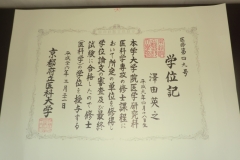 医修第四九号
学位記
澤田英之
本学大学院医学研究科
医科学専攻の修士課程に
おいて所定の単位を修得し
学位論文の審査及び最終
試験に合格したので修士
(医科学)の学位を授与する
京都府立医科大学